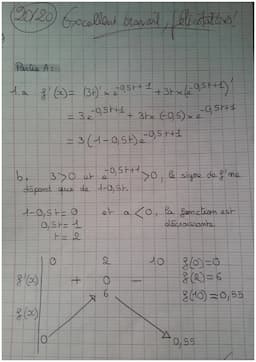 20/20 Excellent travail, félicitations!
Partie A:
1.a f'(x) = (3t)' × e^-0,5t+1 + 3t × (e^-0,5t+1)'
= 3e^-0,5t+1 + 3t × (-0,5) × e^-0,5t+1
= 3(1-0,5t)e^-0,5t+1
b. 3>0 et e^-0,5t+1 >0, le signe de f' ne
dépend que de 1-0,5t.
1-0,5t=0 et a<0, la fonction est
0,5t=1 décroissante.
t=2
0 2 10 f(0)=0
f'(x) + 0 - f(2)=6
6 f(10)=0,55
f(x)
0 0,55